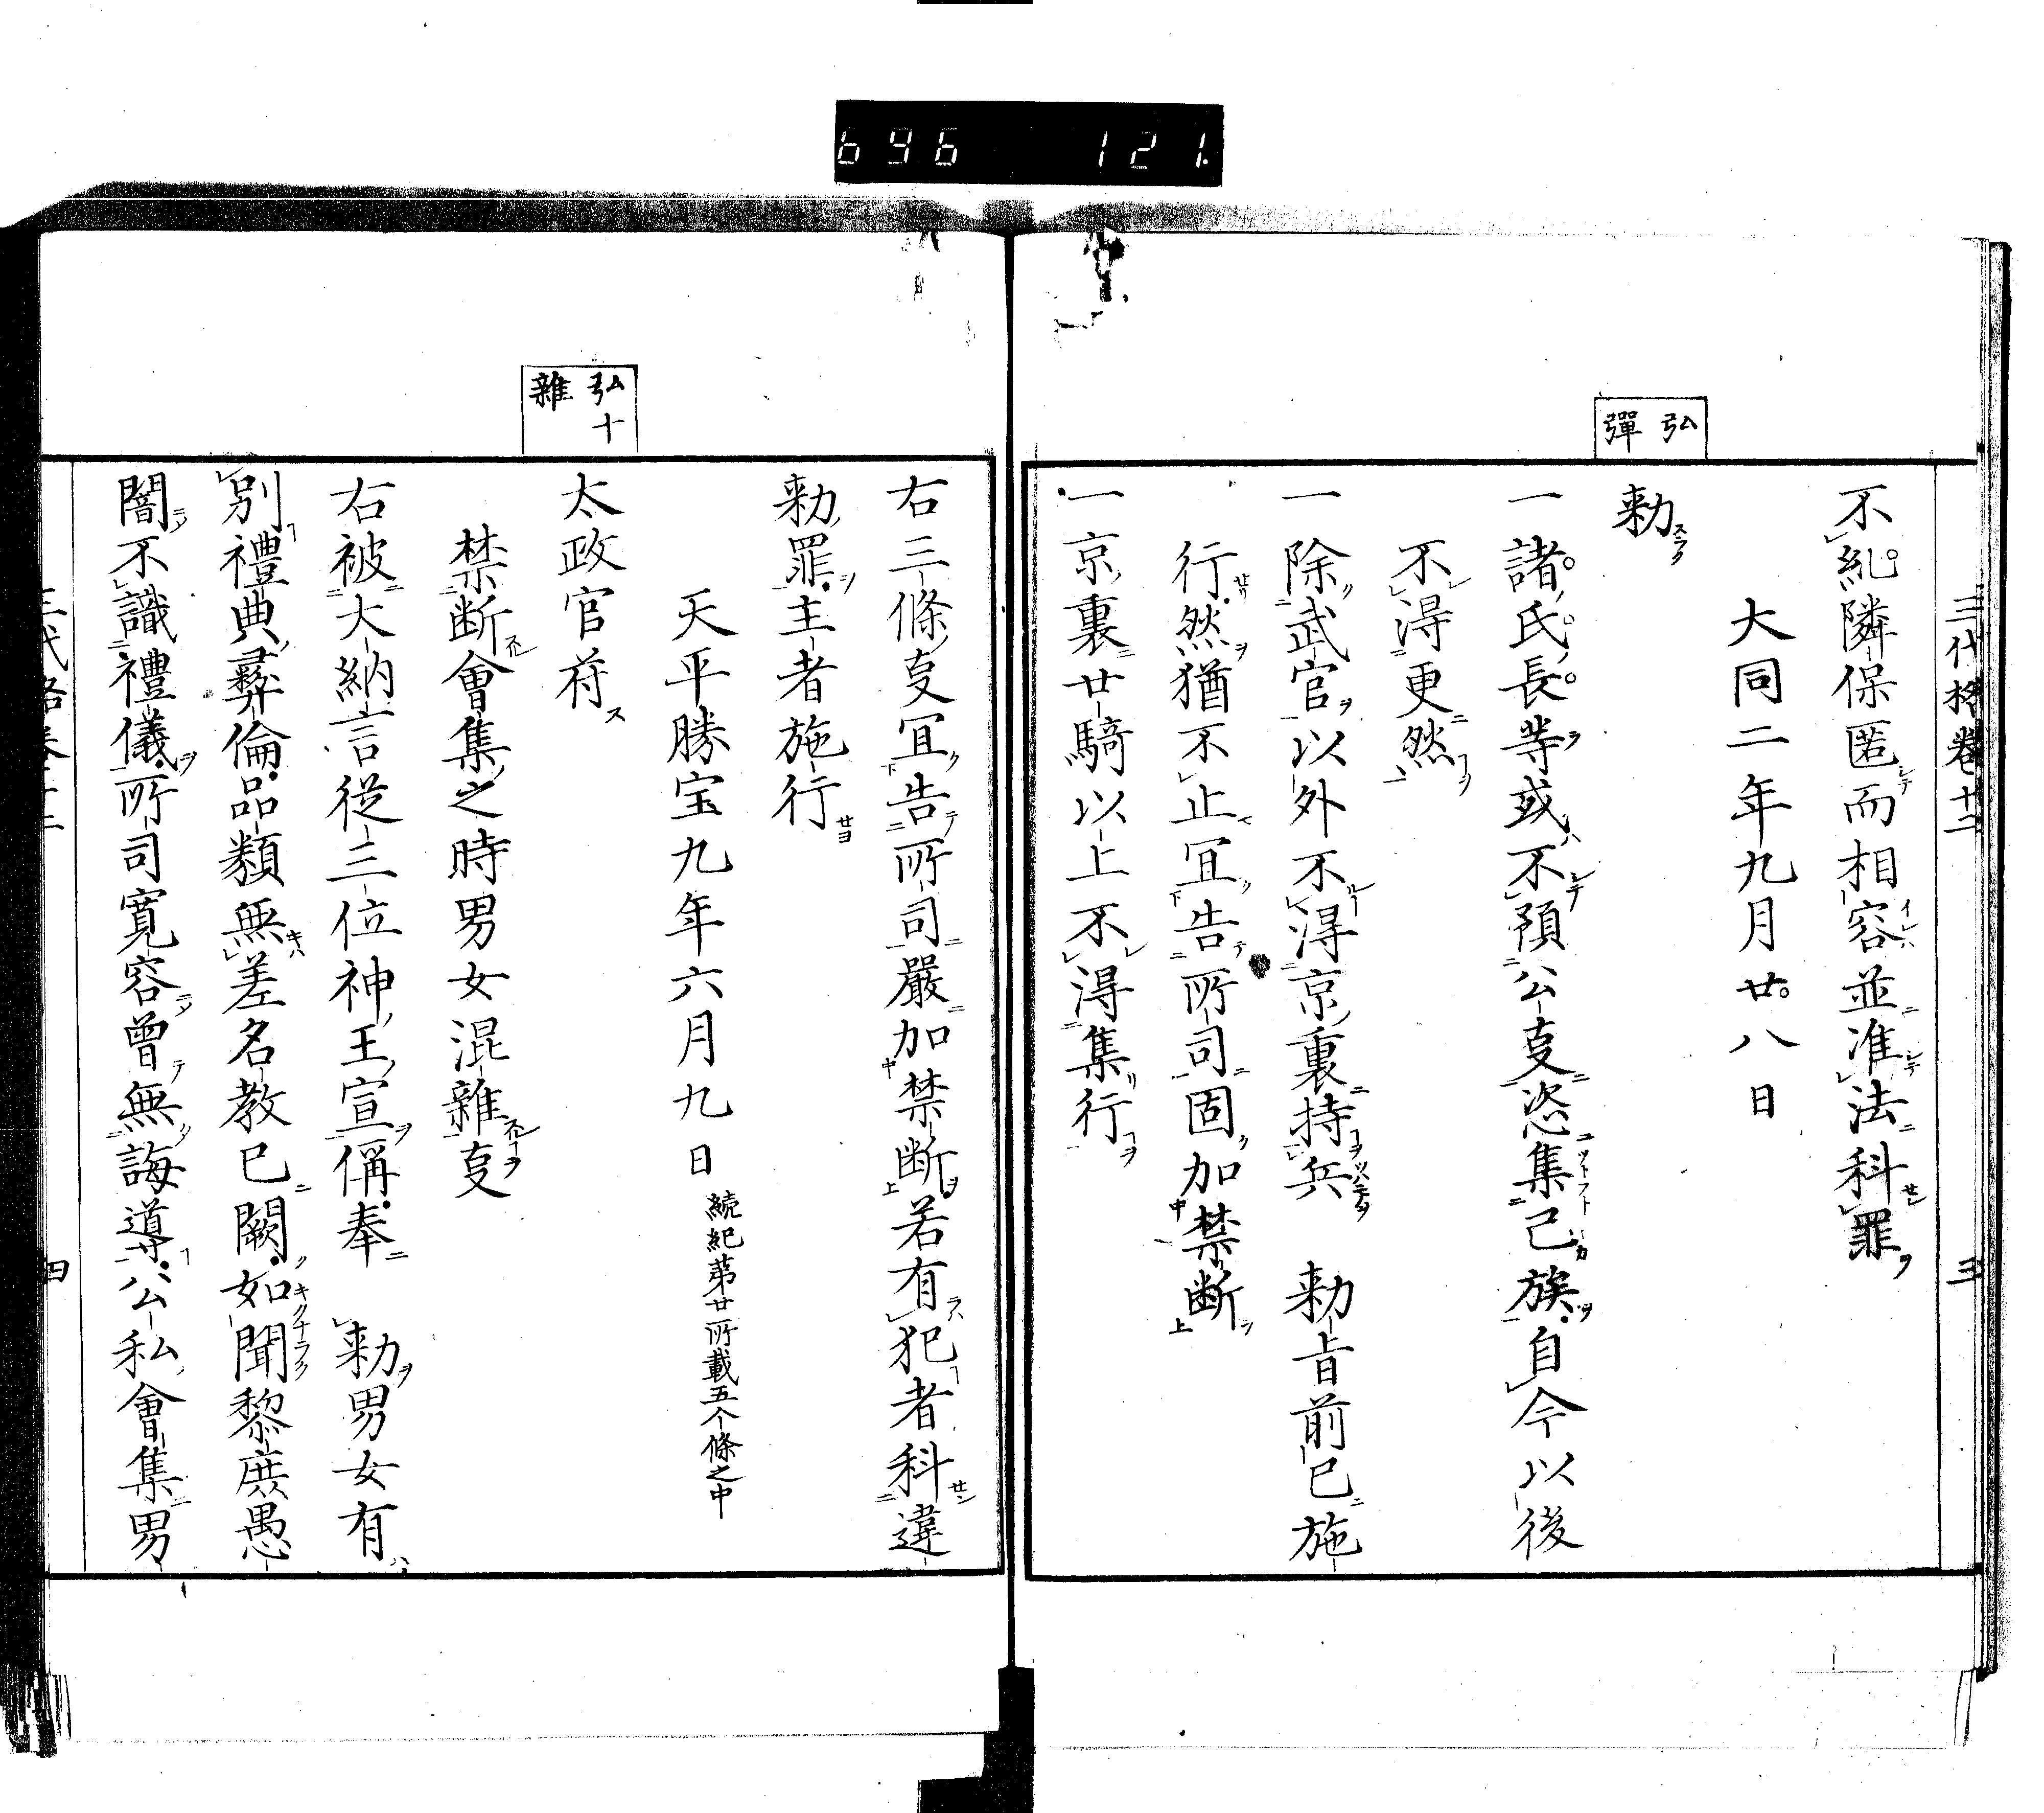 696 121.
三代格卷十二 三
弘
彈
不糺隣保匿而相容並准法科罪
大同二年九月廿八日
勅
一諸氏長等或不預公叓恣集己族自今以後
不得更然
一除武官以外不得京裏持兵 勅旨前已施
行然猶不止冝告所司固加禁断
一京裏廿騎以上不得集行
右三條叓冝告所司嚴加禁断若有犯者科違
勅罪主者施行
天平勝宝九年六月九日 続紀苐廿所載五个條之中
弘十
雜
太政官符
禁断會集之時男女混雜叓
右被大納言從三位神王宣偁奉 勅男女有
別禮典彛倫品類無差名教已闕如聞黎庶愚
闇不識禮儀所司寛容曾無誨導公私會集男
三代格卷十二 四